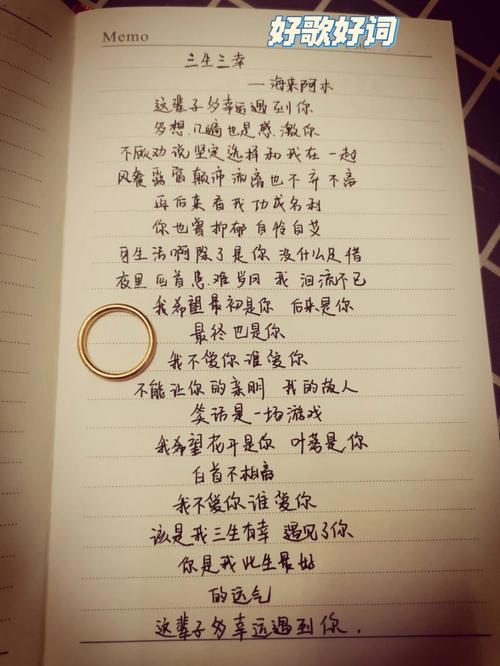 好歌好词
Memo
三生三幸
—海来阿木
这辈子多幸运遇到你
多想几瞒也是感激你
不顾劝说坚定选择和我在一起
风餐露宿颠沛流离也不弃不离
再后来看我功成名利
你也曾抑郁自怜自艾
可生活啊除了是你没什么足惜
夜里回首患难岁月我泪流不已
我希望最初是你 后来是你
最终也是你
我不爱你谁爱你
不能让你的亲朋 我的故人
笑话是一场游戏
我希望花开是你 叶落是你
白首不相离
我不爱你谁爱你
该是我三生有幸 遇见了你
你是我此生最好
的运气
这辈子多幸运遇到你.